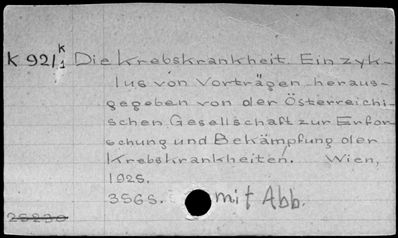 K 921/K1 Die Krebskrankheit. Ein Zyk-
lus von Vorträgen heraus-
gegeben von der Österreichi-
schen Gesellschaft zur Erfor-
schung und Bekämpfung der
Krebskrankheiten. Wien,
1925.
356 S. mit Abb.